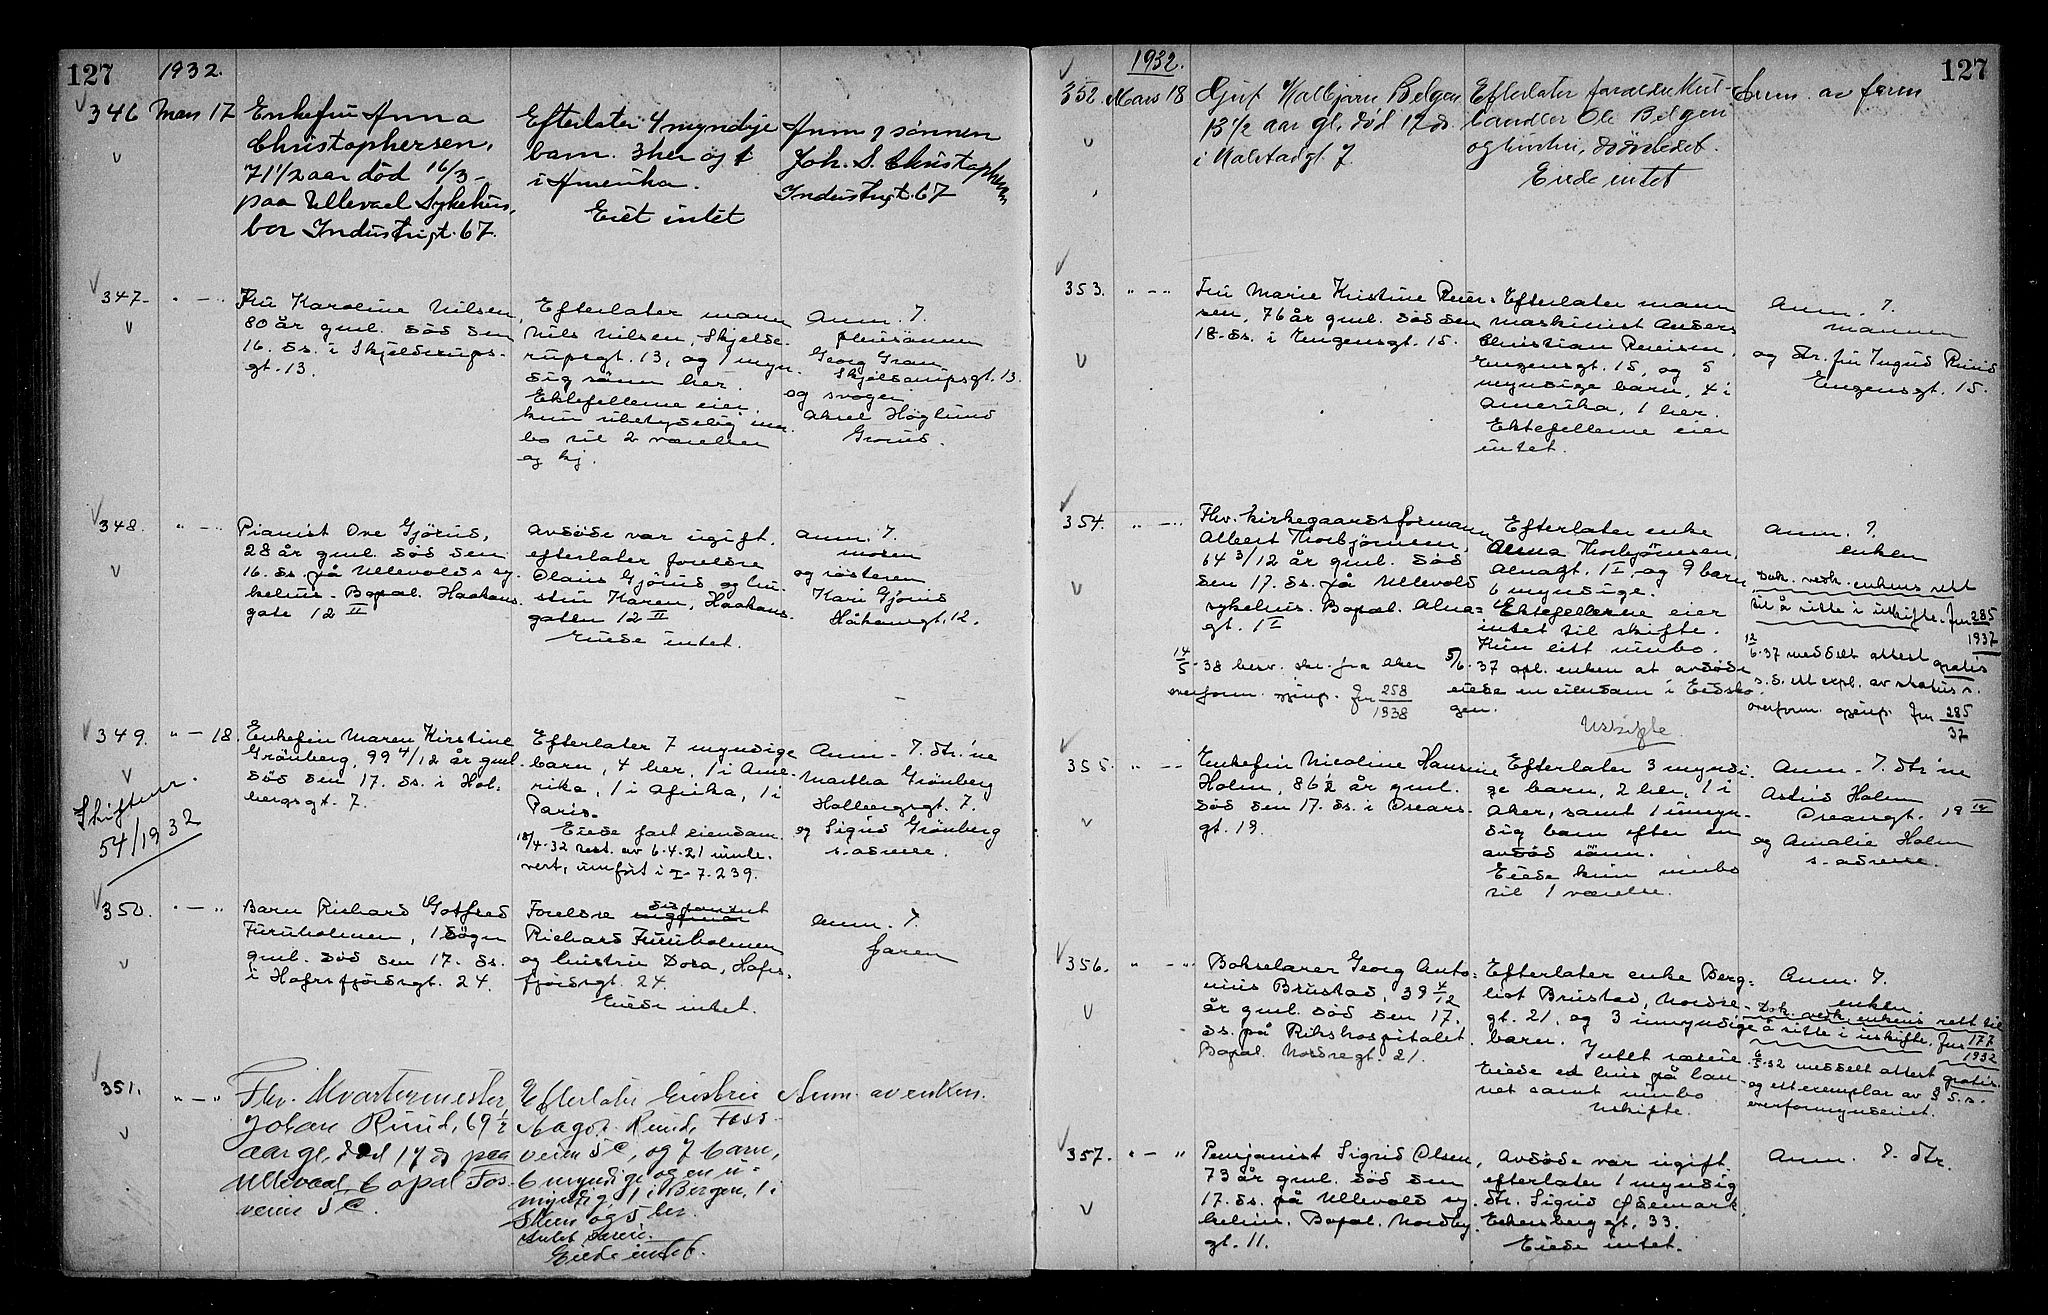 127
1932.
346 Mars 17
Enkefru Anna
Christophersen,
71 1/2 aar död 16/3 -
paa Ullevaal Sykehus,
bor Industrigt. 67.
Efterlater 4 myndige
barn. 3 her og 1
i Amerika.
Eiet intet
Anm. ? sönnen
Joh. S. Christophersen
Industrigt. 67
347. " — "
Fru Karoline Nilsen,
80 år gml. död den
16. ds. i Skjelderups-
gt. 13.
Efterlater mann
Nils Nilsen, Skjelde-
rupsgt. 13, og 1 myn-
dig sönn her.
Ektefellene eier
kun ubetydelig inn-
bo til 2 værelser
og kj.
Anm. ?
pleiesönnen
Georg Gran
Skjelderupsgt. 13
og svoger
Aksel Höglund
Grorud.
348. " — "
Pianist Ove Gjörud,
28 år gml. död den
16. ds. på Ullevolds sy-
kehus. Bopæl Haakons-
gate 12 II
Avdöde var ugift,
efterlater foreldre
Olaus Gjörud og hu-
stru Karen, Haakons-
gaten 12 II
Eiede intet.
Anm. ?
moren
og söstoren
Kari Gjörud
Håkonsgt. 12.
349. " — 18.
Enkefru Maren Kirstine
Grönberg, 99 4/12 år gml.
död den 17. ds. i Hol-
bergsgt. 7.
Skiftenr.
54/1932
Efterlater 7 myndige
barn, 4 her, 1 i Ame-
rika, 1 i Afrika, 1 i
Paris.
Eiede fast eiendom.
18/4-32 test. av 6.4.21 innle-
vert, innfört i I-7.239.
Anm. ? dtr.'ne
Martha Grönberg
Holbergsgt. 7.
og Sigrid Grönberg
s. adresse.
350. " — "
Barn Richard Gotfred
Furuholmen, 1 dögn
gml. död den 17. ds.
i Hafrsfjordsgt. 24.
Foreldre disponent
Richard Furuholmen
og hustru Dora, Hafrs-
fjordsgt. 24.
Eiede intet.
Anm. ?
faren
351. " — "
Fhv. Kvartermester
Johan Ruud, 69 1/2
aar gl. död 17 ds paa
Ullevaal bopæl Fos-
veien 5 C.
Efterlater hustru
Aagot Ruud, Foss-
veien 5 C, og 7 barn,
6 myndige og en u-
myndig 1 i Bergen, 1 i
Skien og 5 her.
Intet særeie.
Eiede intet.
Anm. av enken.
1932.
127
352. Mars 18
13 1/2 aar gl. död 17 ds.
Efterlater foreldre
og hustru, dödstedet.
Eiede intet
Anm. av faren
353. " — "
Fru Marie Kristine Reier-
sen, 76 år gml. död den
18. ds. i Eugensgt. 15.
Efterlater mann
maskinist Anders
Christian Reiersen,
Eugensgt. 15, og 5
myndige barn, 4 i
Amerika, 1 her.
Ektefellene eier
intet.
Anm. ?
mannen
og dtr. fru Ingrid
Eugensgt. 15.
354. " — "
Fhv. kirkegaardsformann
Albert Thorbjörnsen,
64 3/12 år gml. död
den 17. ds. på Ullevold
sykehus. Bopæl Alna-
gt. 1 I
Efterlater enke
Anna Thorbjörnsen,
Alnagt. 1 I, og 9 barn
6 myndige.
Ektefellene eier
intet til skifte.
Kun litt innbo.
Anm. ?
enken
Dok. vedk. enkens rett
til å sitte i uskifte. Jnr 285/1937
14/5-38 besv. skr. fra Aker
overform. gjenp. Jnr 258/1938
5/6.37 opl. enken at avdöde
eiede en eiendom i Eidsko-
gen.
Uskifte
12/6.37 meddelt attest gratis
s. d. ett expl. av status s.
overform. gjenp. Jnr 285/37
355. " — "
Enkefru Nicoline Hansine
Holm, 86 1/2 år gml.
död den 17. ds. i Oscars-
gt. 19.
Efterlater 3 myndi-
ge barn, 2 her, 1 i
Aker, samt 1 umyn-
dig barn efter en
avdöd sönn.
Eiede kun innbo
til 1 værelse.
Anm. ? dtr.'ne
Astrid Holm
Oscarsgt. 19 IV
og Amalie Holm
s. adresse.
356. " — "
Bokselarer Georg Anto-
nius Brustad, 39 4/12
år gml. död den 17.
ds. på Rikshospitalet.
Bopæl Nordregt. 21.
Efterlater enke Berg-
liot Brustad, Nordre-
gt. 21, og 3 umyndige
barn. Intet særeie.
Eiede et hus på lan-
net samt innbo.
Uskifte.
Anm. ?
enken.
Dok. vedk. enkens rett til
å sitte i uskifte, Jnr 177/1932
6/5-32 meddelt attest gratis.
og ett exemplar av § 5. s.
overformynderiet.
357. " — "
Pensjonist Sigrid Olsen,
73 år gml. död den
17. ds. på Ullevold sy-
kehus. Bopæl Nordby-
gt. 11.
Avdöde var ugift,
efterlater 1 myndig
dtr. Sigrid Ödemark,
Eckersbergsgt. 33.
Eiede intet.
Anm. ? dtr.